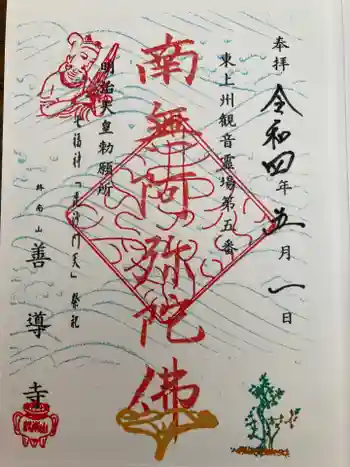 奉拝
令和四年五月一日
東上州観音霊場第五番
南無阿弥陀佛
明治天皇勅願所
七福神「毘沙門天」祭祀
終南山
善導寺